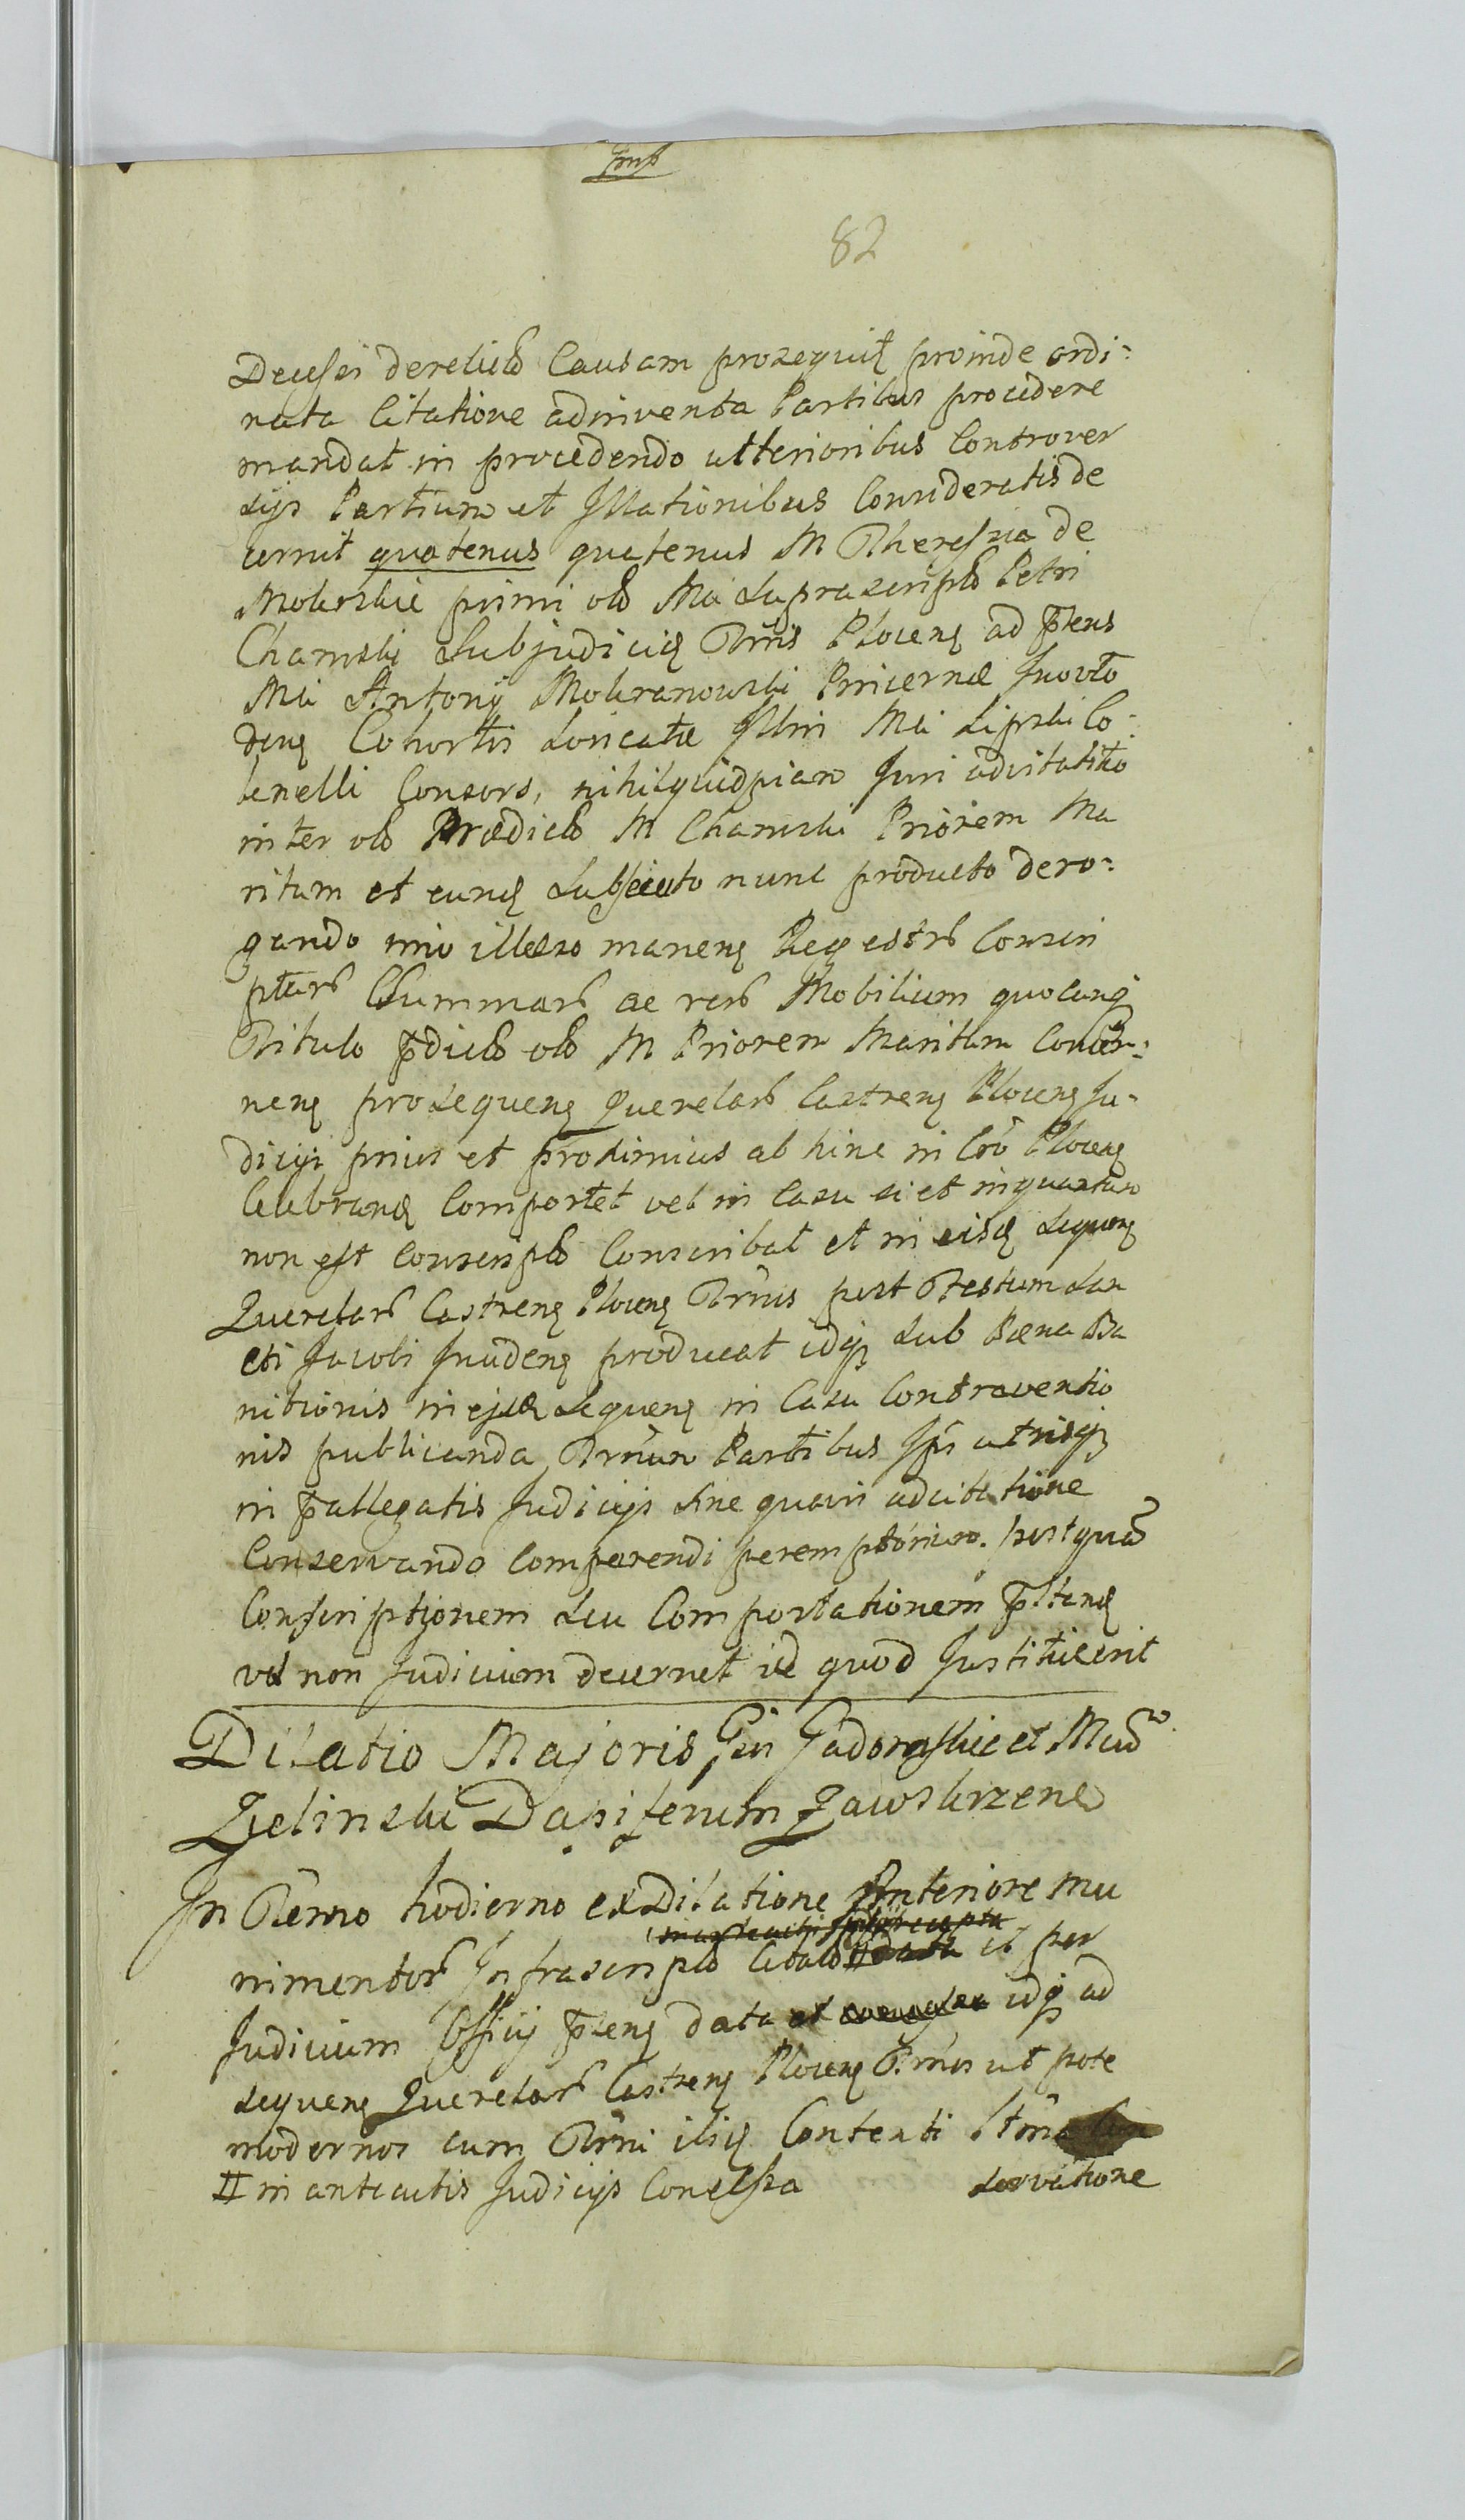 82
Decessi derelicto Causam prosequit proinde ordi:
nata Citatione adinventa Partibus procedere
mandat in procedendo ulterioribus Controver
sijs Partium et Illationibus Consideratis de
cernit quatenus quatenus M Theresia de
Mokrskie primi olo Mci suprascripto Petri
Chamski Subjudicis Tris Plocens ad ptens
Mci Antonij Mokranowski Pincernæ Inowło
dens Cohortis Loricatæ Illmi Mci Lipski Co:
lenelli Consors, nihilquidpiam Juri advitalitio
inter olo Prædicto M Chamski Priorem Ma
ritum et eund subsecuto nunc producto dero:
gando imo illæso manens Regestrum Conscri
ptum Summarum ac rerum Mobilium quocunq
Titulo pdicto olo M Priorem Maritum Concer:
nens prosequens Querelarum Castrens Plocens Ju:
dicijs prius et proximius ab hinc in Cro Plocens
Celebrand Comportet vel in Casu si et inquantum
non est conscripto Conscribat et in eisd sequens
Querelarum Castrens Plocens Trnis post Festum San
cti Jacobi Incidens producat idq sub Pæna Ba
nitionis in ejsd sequens in Casu Contraventio
nis publicanda Trnum Partibus Ips utrisq
in pallegatis Judicijs sine quavis adcitatione
Conservando Comparendi peremptorium. postquam
Conscriptionem seu Comportationem pstand
vel non Judicium decernet id quod Justitiæ erit
Dilatio Majoris Gsi Jadorskie et Mcum
Zielinski Dapiferum Zawskrzens
In Termo hodierno ex Dilatione Anteriore mu
nimentorum Infrascripto Citato II data et per
Judicium Officij ptens data et idq ad
sequens Querelarum Castrens Plocens Trnos ut pote
modernos cum Trni ilid Contenti Trmi
II in anteactis Judicijs Concessa servatione